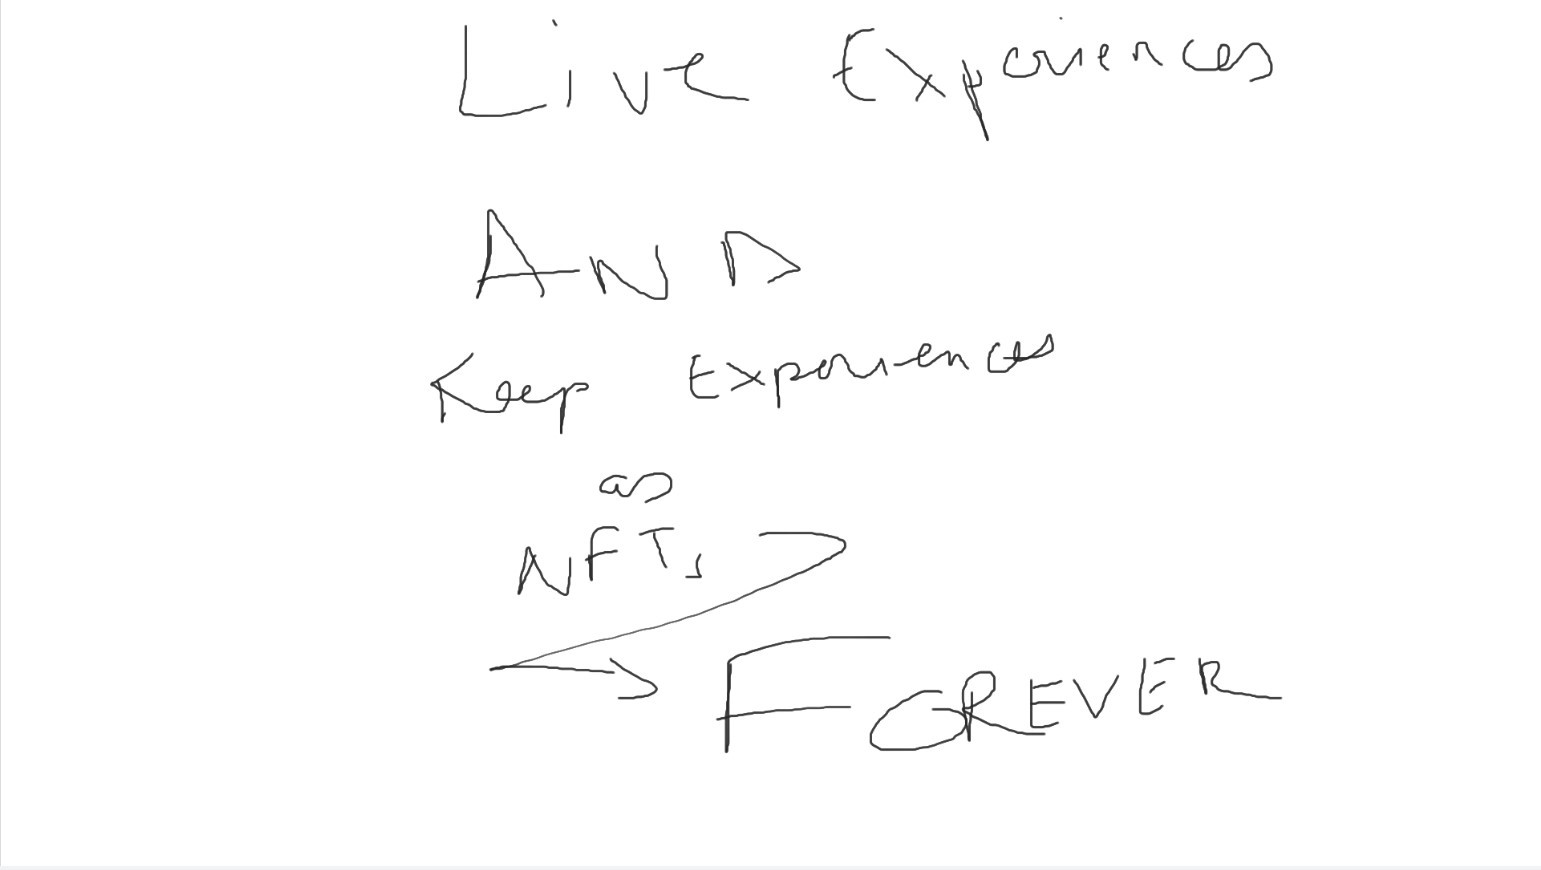 Live Experiences
AND
Keep Experiences
as
NFTs
FOREVER